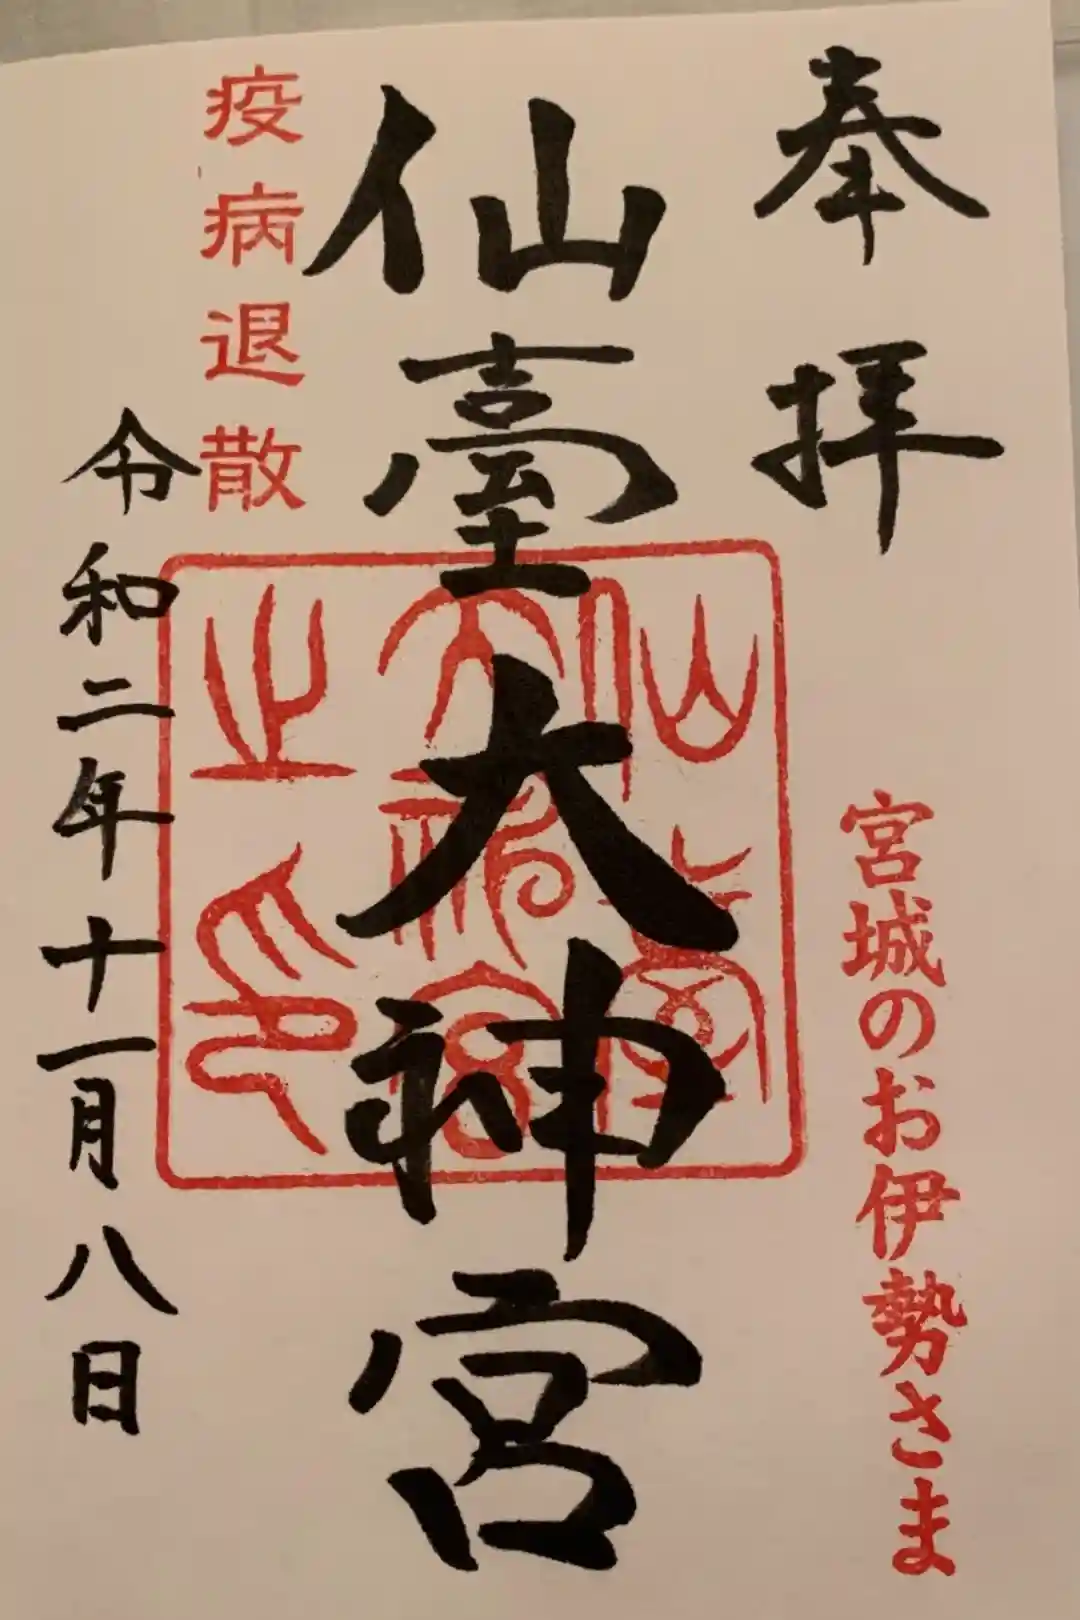 奉拝
宮城のお伊勢さま
仙臺大神宮
仙臺
大神宮
之印
疫病退散
令和二年十一月八日